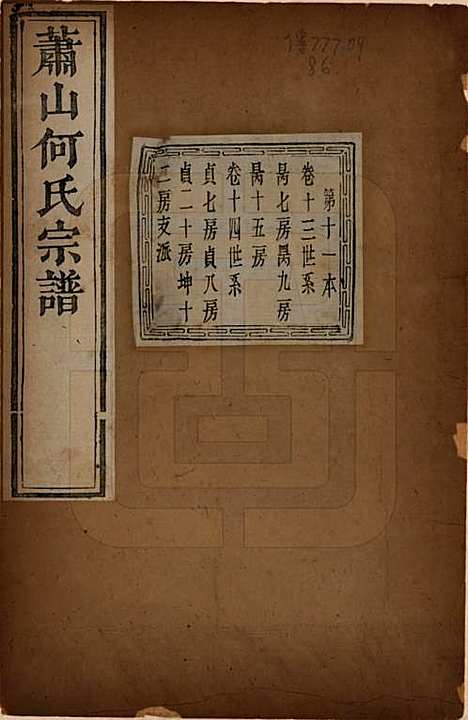 蕭山何氏宗譜
第十一本
卷十三世系
昺七房昺九房
昺十五房
卷十四世系
貞七房貞八房
貞二十房坤十
二房支派
777.09
86